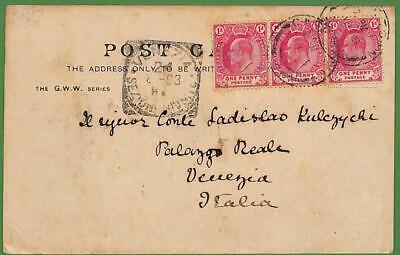 POST CA
THE ADDRESS ONLY TO BE WRIT
THE G.W.W. SERIES
ONE PENNY
POSTAGE
ONE PENNY
POSTAGE
ONE PENNY
POSTAGE
Il Signor Conte Ladislao Kulczycki
Palazzo Reale
Venezia
Italia